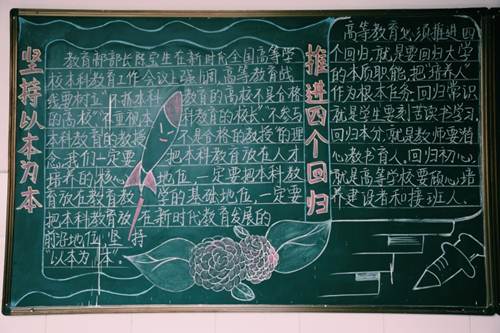 坚持以本为本
教育部部长陈宝生在新时代全国高等学
校本科教育工作会议上强调,高等教育战
线要树立"不抓本科教育的高校不是合格
的高校""不重视本科教育的校长""不参与
本科教育的教授不是合格的教授"的理
念。我们一定要把本科教育放在人才
培养的核心地位,一定要把本科教
育放在教育教学的基础地位,一定要
把本科教育放在新时代教育发展的
前沿地位,坚持
"以本为本"。
推进四个回归
高等教育必须推进四
个回归,就是要回归大学
的本质职能,把"培养人"
作为根本任务。回归常识
就是学生要刻苦读书学习。
回归本分,就是教师要潜
心教书育人。回归初心,
就是高等学校要倾心培
养建设者和接班人。